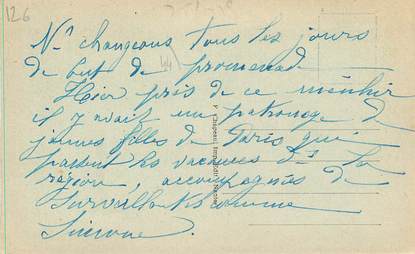 126
Ns changeons tous les jours
de but de promenade
Hier près de ce menhir
il y avait un patronage de
jeunes filles de Paris qui
passent les vacances ds la
région, accompagnées de
Surveillantes comme
F. Chapeau, Imp. Édit., Nantes